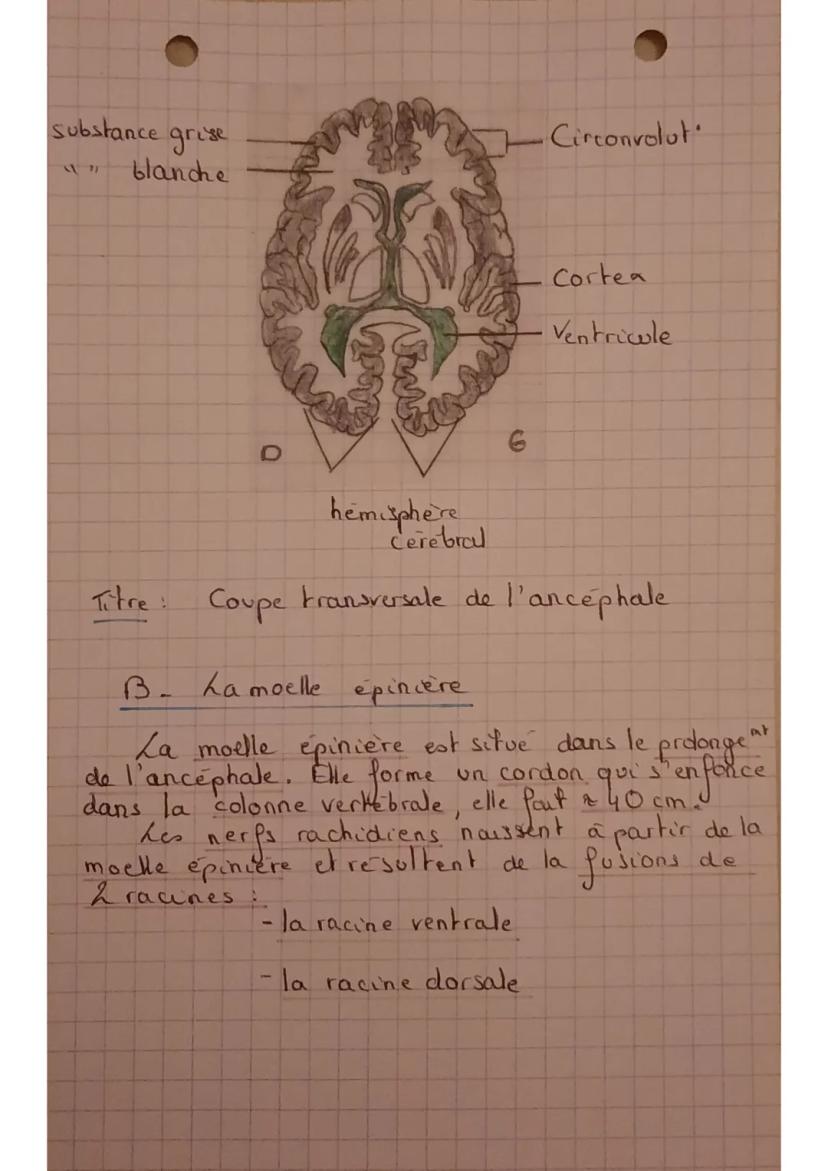 substance grise
" " blanche
Circonvolut°
Cortex
Ventricule
D
G
hémisphère
cérébral
Titre : Coupe transversale de l'ancéphale
B - La moelle épinière
La moelle épinière est situé dans le prolongent
de l'ancéphale. Elle forme un cordon qui s'enfonce
dans la colonne vertébrale, elle fait ≈ 40 cm.
Les nerfs rachidiens naissent à partir de la
moelle épinière et résultent de la fusions de
2 racines :
- la racine ventrale
- la racine dorsale